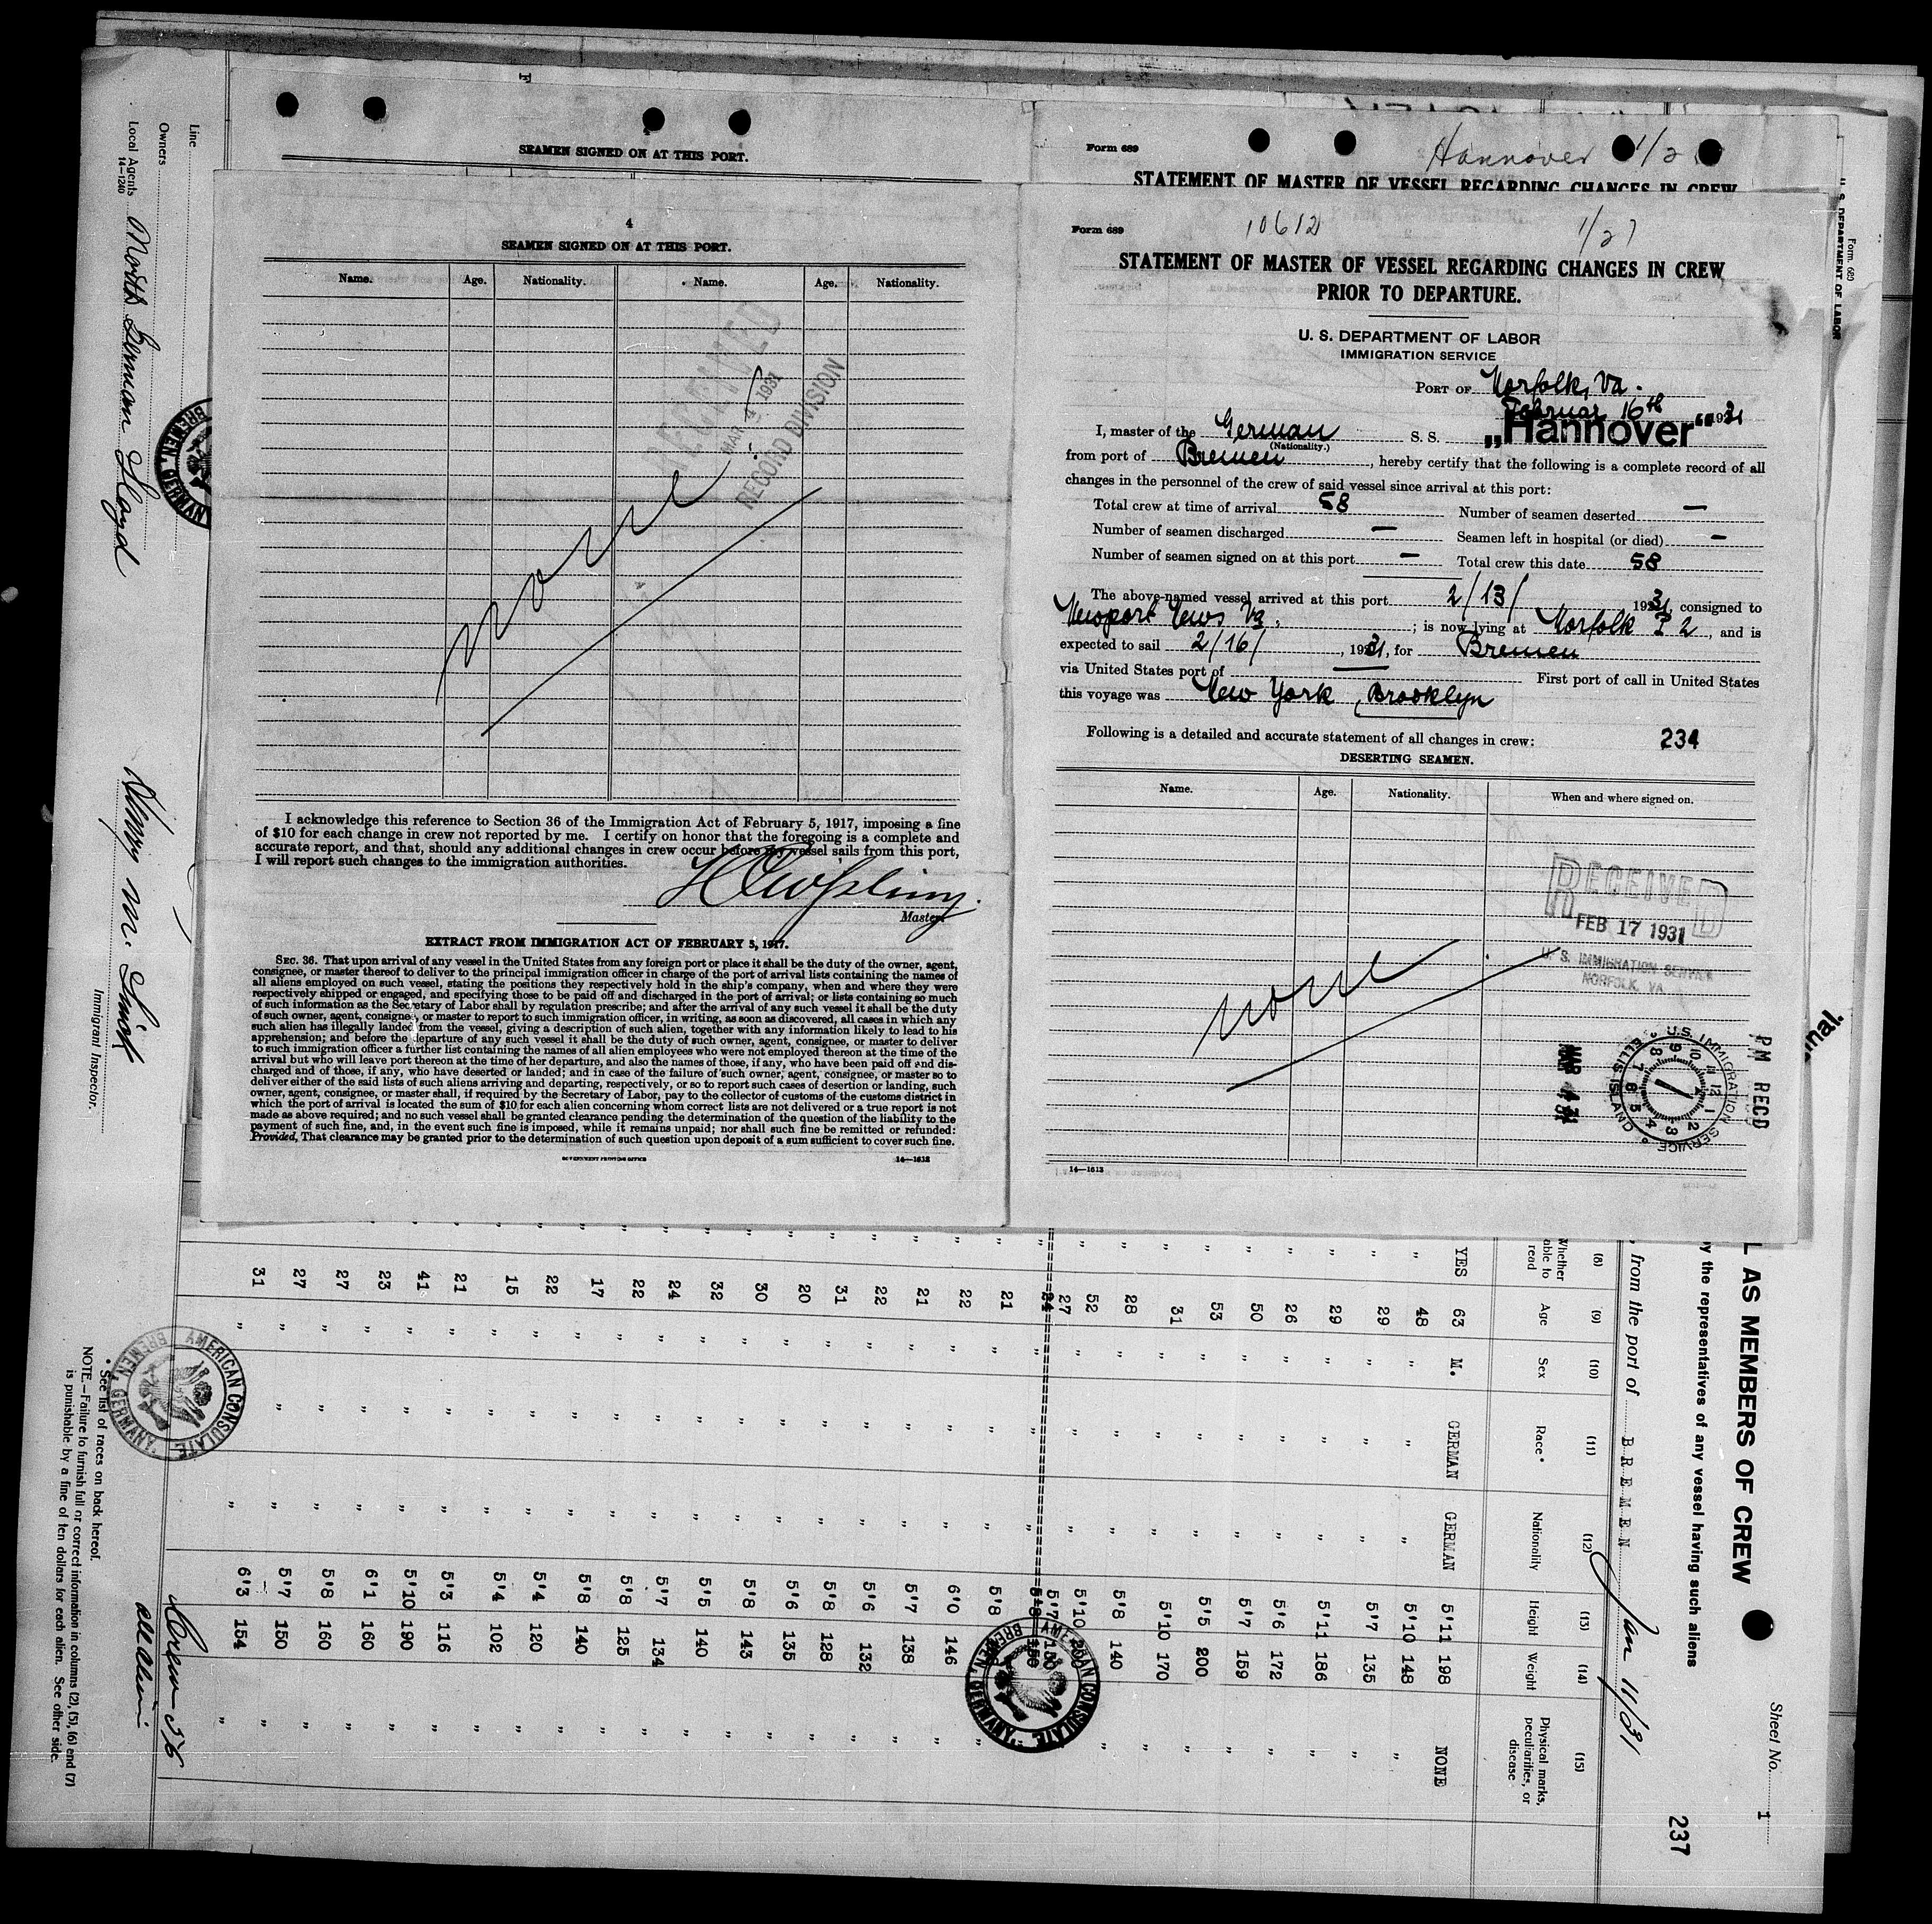 SEAMEN SIGNED ON AT THIS PORT.
4
SEAMEN SIGNED ON AT THIS PORT.
Name. Age. Nationality. Name. Age. Nationality.
RECEIVED
MAR 4 1931
RECORD DIVISION
none
I acknowledge this reference to Section 36 of the Immigration Act of February 5, 1917, imposing a fine
of $10 for each change in crew not reported by me. I certify on honor that the foregoing is a complete and
accurate report, and that, should any additional changes in crew occur before my vessel sails from this port,
I will report such changes to the immigration authorities.
Master.
EXTRACT FROM IMMIGRATION ACT OF FEBRUARY 5, 1917.
SEC. 36. That upon arrival of any vessel in the United States from any foreign port or place it shall be the duty of the owner, agent,
consignee, or master thereof to deliver to the principal immigration officer in charge of the port of arrival lists containing the names of
all aliens employed on such vessel, stating the positions they respectively hold in the ship's company, when and where they were
respectively shipped or engaged, and specifying those to be paid off and discharged in the port of arrival; or lists containing so much
of such information as the Secretary of Labor shall by regulation prescribe; and after the arrival of any such vessel it shall be the duty
of such owner, agent, consignee, or master to report to such immigration officer, in writing, as soon as discovered, all cases in which any
such alien has illegally landed from the vessel, giving a description of such alien, together with any information likely to lead to his
apprehension; and before the departure of any such vessel it shall be the duty of such owner, agent, consignee, or master to deliver
to such immigration officer a further list containing the names of all alien employees who were not employed thereon at the time of the
arrival but who will leave port thereon at the time of her departure, and also the names of those, if any, who have been paid off and dis-
charged and of those, if any, who have deserted or landed; and in case of the failure of such owner, agent, consignee, or master so to
deliver either of the said lists of such aliens arriving and departing, respectively, or so to report such cases of desertion or landing, such
owner, agent, consignee, or master shall, if required by the Secretary of Labor, pay to the collector of customs of the customs district in
which the port of arrival is located the sum of $10 for each alien concerning whom correct lists are not delivered or a true report is not
made as above required; and no such vessel shall be granted clearance pending the determination of the question of the liability to the
payment of such fine, and, in the event such fine is imposed, while it remains unpaid; nor shall such fine be remitted or refunded:
Provided, That clearance may be granted prior to the determination of such question upon deposit of a sum sufficient to cover such fine.
GOVERNMENT PRINTING OFFICE 14—1613
Form 689 Hannover 1/2
STATEMENT OF MASTER OF VESSEL REGARDING CHANGES IN CREW
Form 689 10612 1/27
STATEMENT OF MASTER OF VESSEL REGARDING CHANGES IN CREW
PRIOR TO DEPARTURE.
U. S. DEPARTMENT OF LABOR
IMMIGRATION SERVICE
PORT OF Norfolk, Va.
Februar 16th 1931
I, master of the German S. S. „Hannover"
(Nationality.)
from port of Bremen, hereby certify that the following is a complete record of all
changes in the personnel of the crew of said vessel since arrival at this port:
Total crew at time of arrival 58 Number of seamen deserted —
Number of seamen discharged — Seamen left in hospital (or died) —
Number of seamen signed on at this port — Total crew this date 58
The above-named vessel arrived at this port 2/13/ 1931, consigned to
Newport News Va. ; is now lying at Norfolk P 2, and is
expected to sail 2/16/, 1931, for Bremen
via United States port of — First port of call in United States
this voyage was New York, Brooklyn
Following is a detailed and accurate statement of all changes in crew: 234
DESERTING SEAMEN.
Name. Age. Nationality. When and where signed on.
RECEIVED
FEB 17 1931
U. S. IMMIGRATION SERVICE
NORFOLK, VA.
none
MAR 4 31
U.S. IMMIGRATION SERVICE
ELLIS ISLAND
12 1 2 3 4 5 6 7 8 9 10 11
PM RECD
14—1613
Form 689
U. S. DEPARTMENT OF LABOR
nal.
Sheet No. 1
237
L AS MEMBERS OF CREW
y the representatives of any vessel having such aliens
, from the port of BREMEN Jan 11/31
(8) (9) (10) (11) (12) (13) (14) (15)
Whether able to read Age Sex Race* Nationality Height Weight Physical marks, peculiarities, or disease
YES 63 M. GERMAN GERMAN 5'11 198 NONE
" 48 " " " 5'10 148 "
" 29 " " " 5'7 135 "
" 29 " " " 5'11 186 "
" 26 " " " 5'6 172 "
" 50 " " " 5'7 159 "
" 53 " " " 5'5 200 "
" 31 " " " 5'10 170 "
" 28 " " " 5'8 140 "
" 52 " " " 5'10
" 27 " " " 5'7 150
24 5'8 150
" 21 " " " 5'8 "
" 22 " " " 6'0 146 "
" 21 " " " 5'7 138 "
" 22 " " " 5'6 132 "
" 31 " " " 5'8 128 "
" 20 " " " 5'6 135 "
" 30 " " " 5'8 143 "
" 32 " " " 5'5 140 "
" 24 " " " 5'7 134 "
" 22 " " " 5'8 125 "
" 17 " " " 5'8 140 "
" 22 " " " 5'4 120 "
" 15 " " " 5'4 102 "
" 21 " " " 5'3 116 "
" 41 " " " 5'10 190 "
" 23 " " " 6'1 160 "
" 27 " " " 5'8 160 "
" 27 " " " 5'7 150 "
" 31 " " " 6'3 154 "
AMERICAN CONSULATE
BREMEN, GERMANY.
AMERICAN CONSULATE
BREMEN, GERMANY.
BREMEN, GERMAN
Line
Owners
Local Agents North German Lloyd
14-1240
Immigrant Inspector.
Crew 58
* See list of races on back hereof.
NOTE.—Failure to furnish full or correct information in columns (2), (5), (6) and (7)
is punishable by a fine of ten dollars for each alien. See other side.